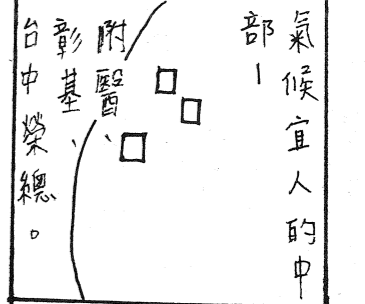 氣候宜人的中
部—
附醫、
彰基、
台中榮總。